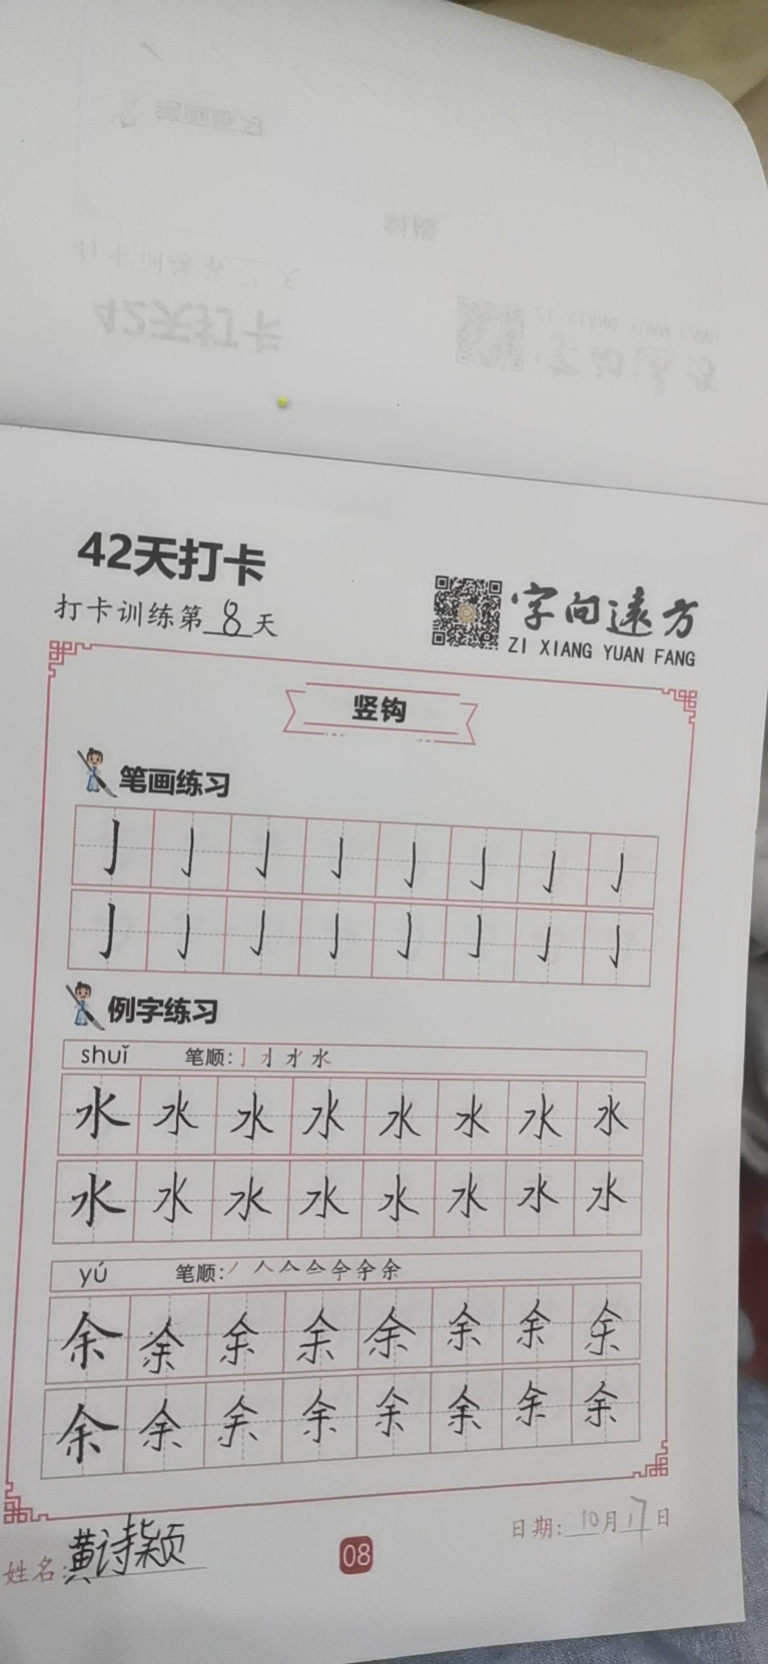 42天打卡
打卡训练第8天
字向远方
ZI XIANG YUAN FANG
竖钩
笔画练习
亅亅亅亅亅亅亅亅
亅亅亅亅亅亅亅亅
例字练习
shuǐ 笔顺:
水水水水水水水水
水水水水水水水水
yú 笔顺:
余余余余余余余余
余余余余余余余余
姓名:黄诗颖
08
日期:10月17日